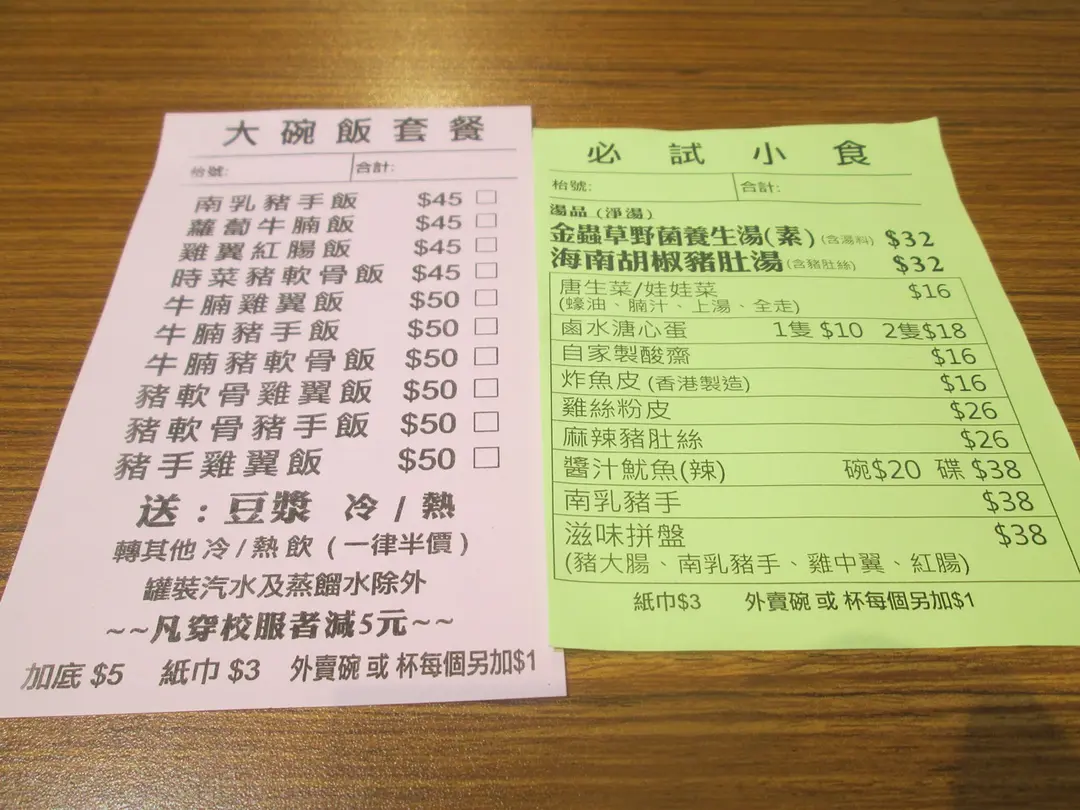 大碗飯套餐
枱號: 合計:
南乳豬手飯 $45 □
蘿蔔牛腩飯 $45 □
雞翼紅腸飯 $45 □
時菜豬軟骨飯 $45 □
牛腩雞翼飯 $50 □
牛腩豬手飯 $50 □
牛腩豬軟骨飯 $50 □
豬軟骨雞翼飯 $50 □
豬軟骨豬手飯 $50 □
豬手雞翼飯 $50 □
送：豆漿 冷/熱
轉其他冷/熱飲(一律半價)
罐裝汽水及蒸餾水除外
~~凡穿校服者減5元~~
加底 $5 紙巾 $3 外賣碗 或 杯每個另加$1
必試小食
枱號: 合計:
湯品（淨湯）
金蟲草野菌養生湯(素)(含湯料) $32
海南胡椒豬肚湯(含豬肚絲) $32
唐生菜/娃娃菜 $16
(蠔油、腩汁、上湯、全走)
鹵水溏心蛋 1隻 $10 2隻$18
自家製酸齋 $16
炸魚皮(香港製造) $16
雞絲粉皮 $26
麻辣豬肚絲 $26
醬汁魷魚(辣) 碗$20 碟 $38
南乳豬手 $38
滋味拼盤 $38
(豬大腸、南乳豬手、雞中翼、紅腸)
紙巾$3 外賣碗 或 杯每個另加$1